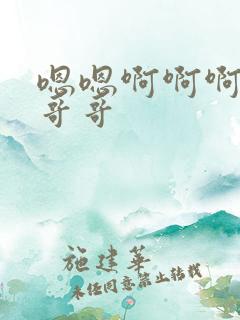 嗯嗯啊啊啊
哥哥
施建华
未经同意禁止转载